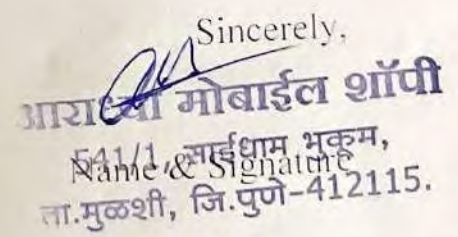 Sincerely,
आराध्या मोबाईल शॉपी
541/1, साईधाम भुकूम,
Name & Signature
ता.मुळशी, जि.पुणे-412115.